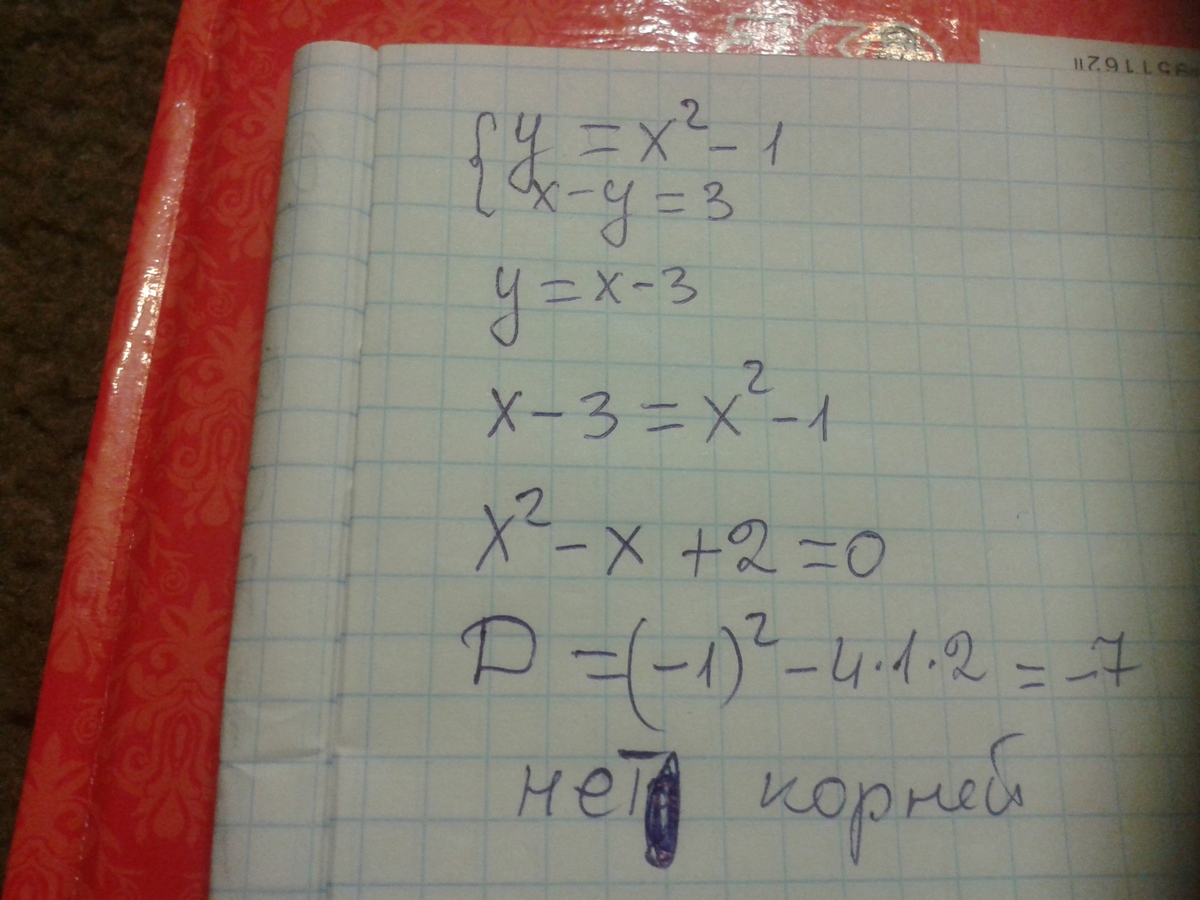 { y = x² - 1
x - y = 3
y = x - 3
x - 3 = x² - 1
x² - x + 2 = 0
D = (-1)² - 4·1·2 = -7
нет корней